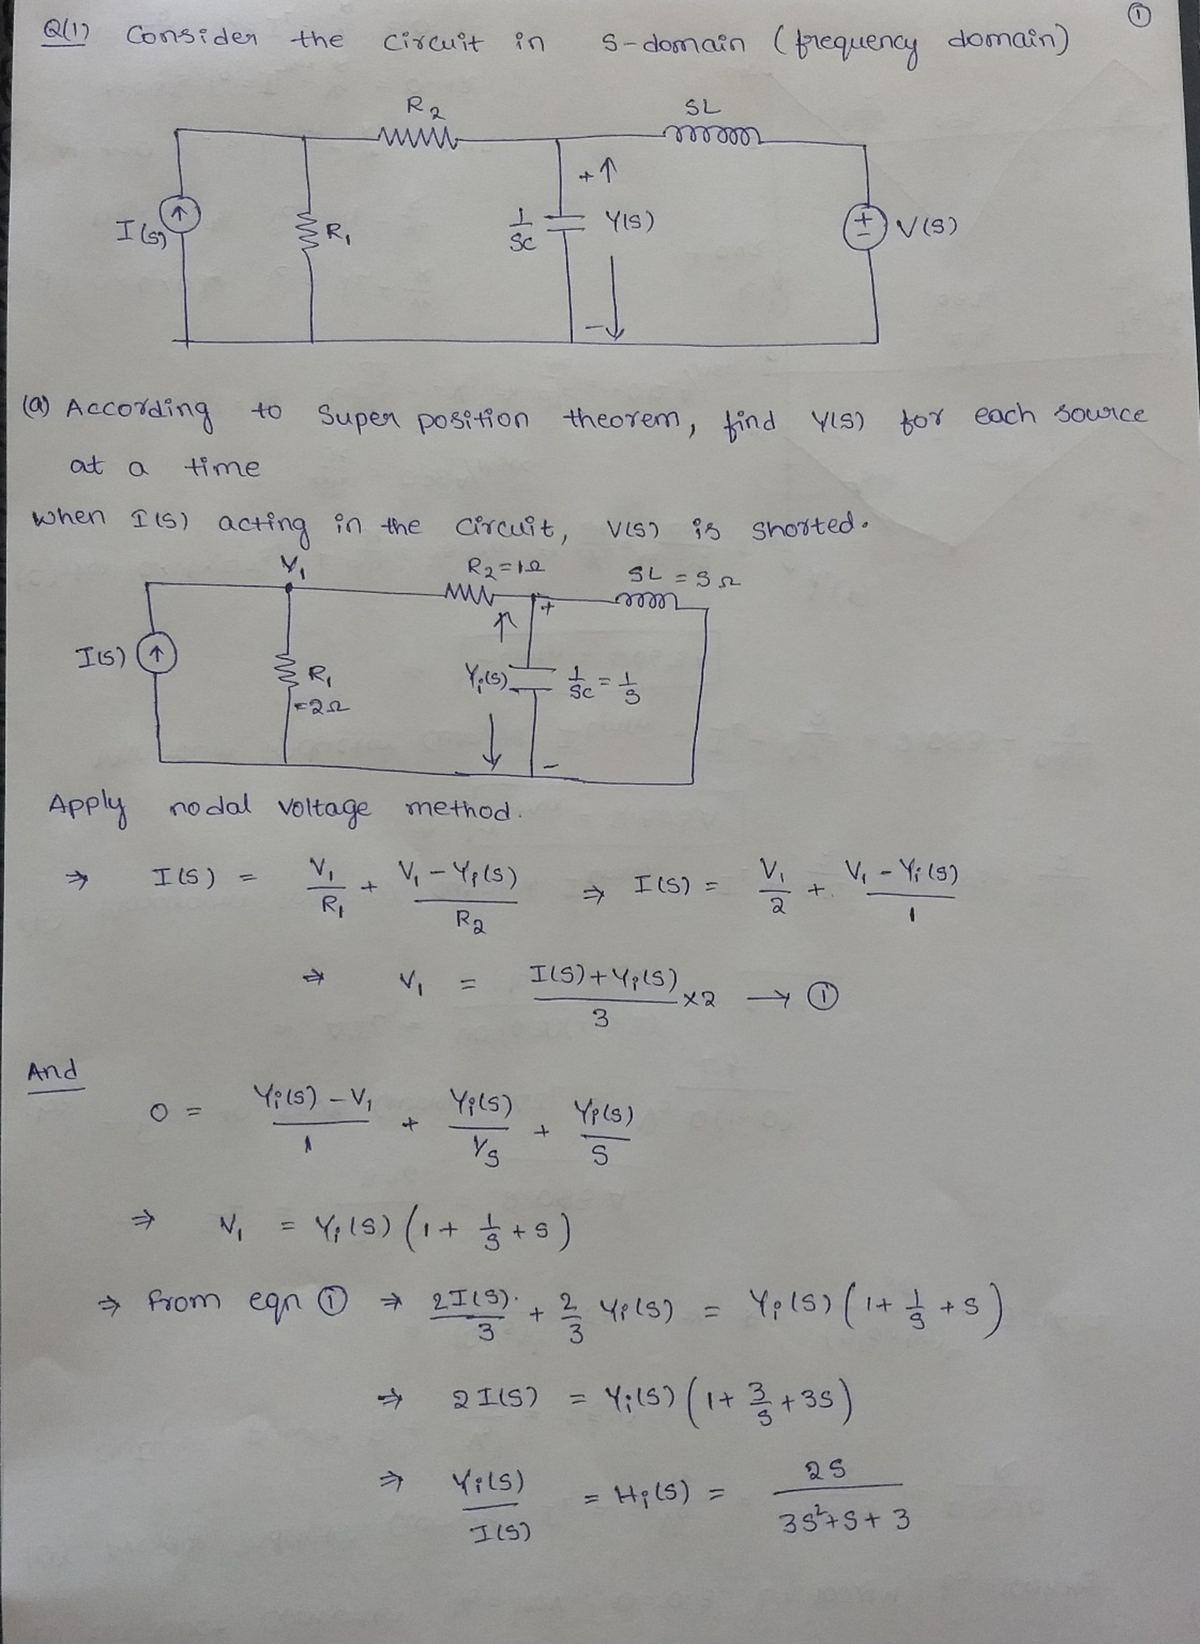 ①
Q(1) Consider the circuit in S-domain (frequency domain)
R2
SL
I(s)
R1
1/SC
+
Y(S)
-
+
-
V(S)
(a) According to Super position theorem, find Y(S) for each source
at a time
when I(S) acting in the circuit, V(S) is shorted.
V1
R2=1Ω
SL = SΩ
I(S)
R1
=2Ω
Yi(S)
+
1/SC = 1/S
-
Apply nodal voltage method.
⇒ I(S) = V1/R1 + (V1 - Yi(S))/R2 ⇒ I(S) = V1/2 + (V1 - Yi(S))/1
⇒ V1 = (I(S)+Yi(S))/3 ×2 → ①
And
0 = (Yi(S) - V1)/1 + Yi(S)/(1/S) + Yi(S)/S
⇒ V1 = Yi(S) (1 + 1/S + S)
⇒ from eqn ① ⇒ 2I(S)/3 + 2/3 Yi(S) = Yi(S) (1 + 1/S + S)
⇒ 2I(S) = Yi(S) (1 + 3/S + 3S)
⇒ Yi(S)/I(S) = Hi(S) = 2S/(3S²+S+3)